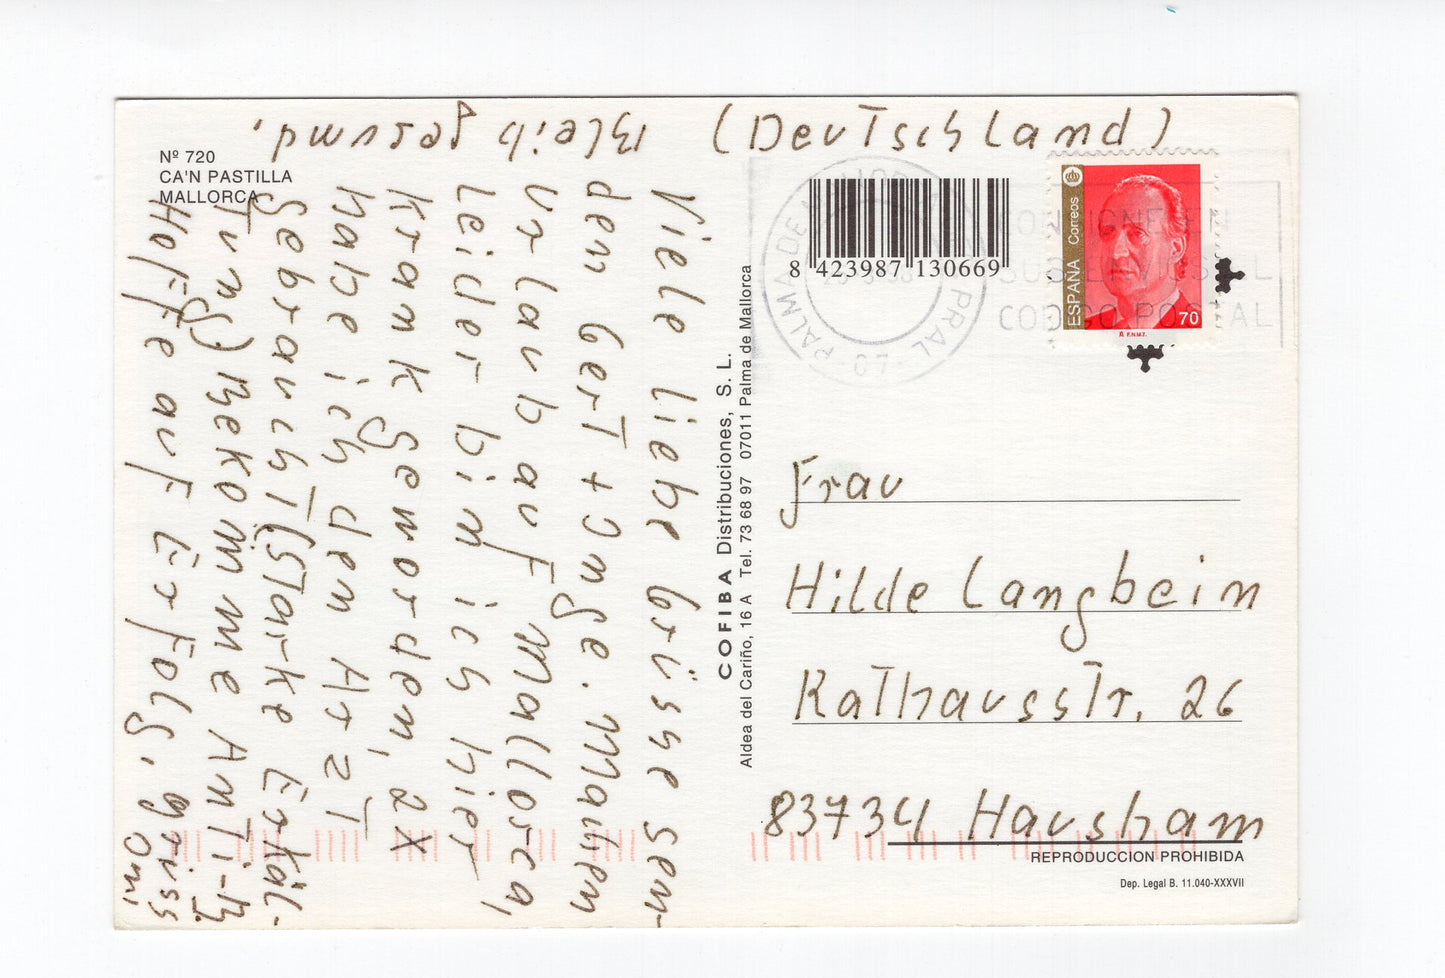 Nº 720
CA'N PASTILLA
MALLORCA
Viele liebe Grüsse sen-
den Gert + Inge. Meinen
Urlaub auf Mallorca,
Leider bin ich hier
krank geworden, 2x
habe ich den Arzt
gebraucht (starke Erkäl-
tung) Bekomme Anti-B.
Hoffe auf Erfolg. Gruss
Omi
Bleib gesund.
COFIBA Distribuciones, S. L.
Aldea del Cariño, 16 A Tel. 73 68 97 07011 Palma de Mallorca
(Deutschland)
8 423987 130669
PALMA DE MALLORCA PRAL
07
CONSIGNE EN
SUS ENVIOS EL
CODIGO POSTAL
ESPAÑA Correos
70
F.N.M.T.
Frau
Hilde Langbein
Rathausstr. 26
83734 Hausham
REPRODUCCION PROHIBIDA
Dep. Legal B. 11.040-XXXVII